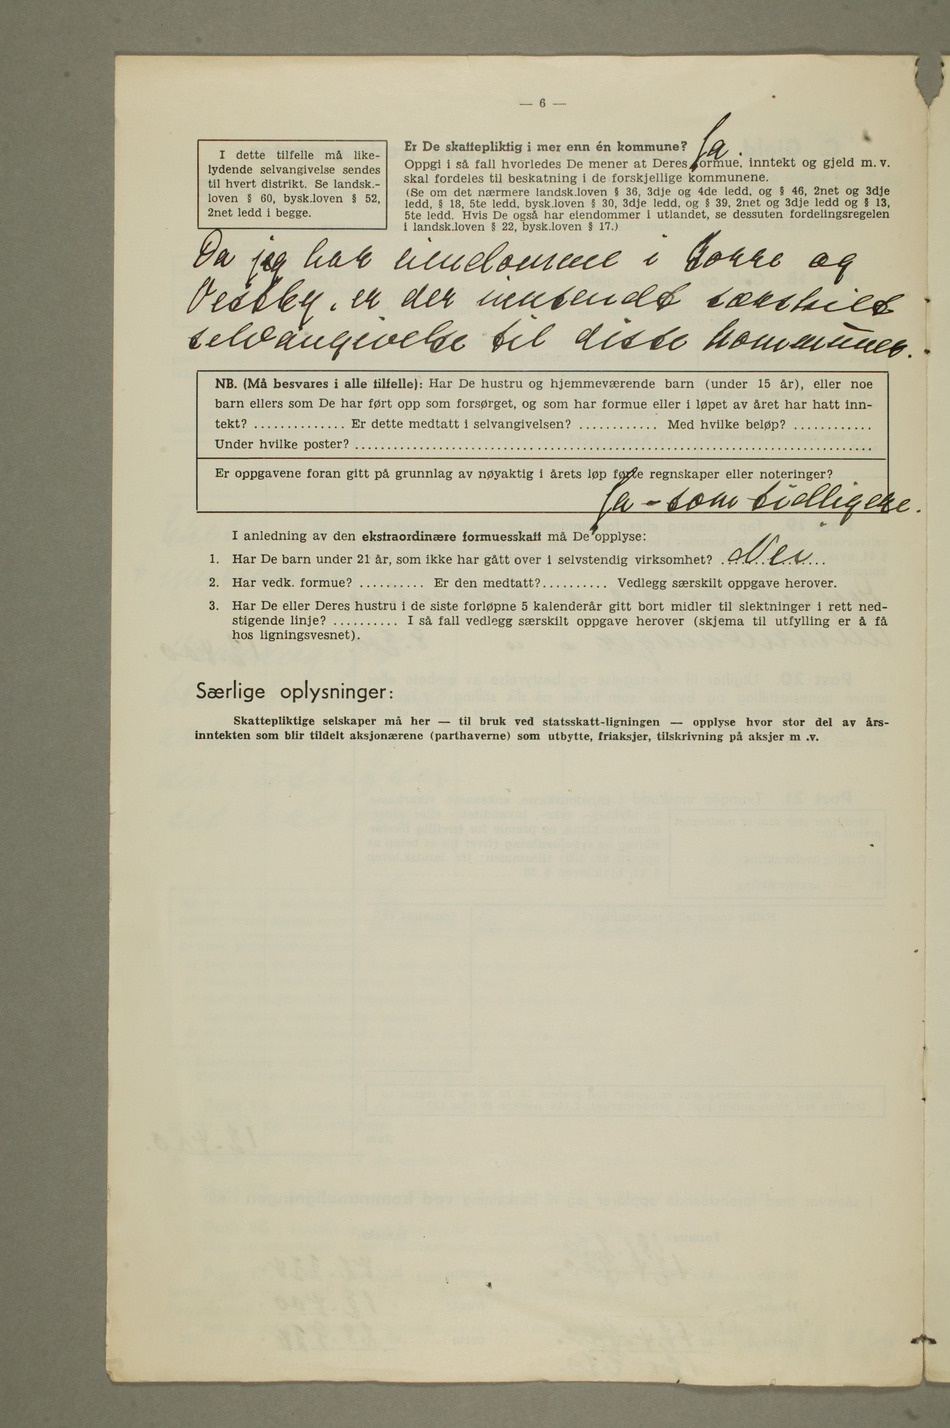 — 6 —
I dette tilfelle må like-
lydende selvangivelse sendes
til hvert distrikt. Se landsk.-
loven § 60, bysk.loven § 52,
2net ledd i begge.
Er De skattepliktig i mer enn én kommune? Ja.
Oppgi i så fall hvorledes De mener at Deres formue, inntekt og gjeld m. v.
skal fordeles til beskatning i de forskjellige kommunene.
(Se om det nærmere landsk.loven § 36, 3dje og 4de ledd, og § 46, 2net og 3dje
ledd, § 18, 5te ledd, bysk.loven § 30, 3dje ledd, og § 39, 2net og 3dje ledd og § 13,
5te ledd. Hvis De også har eiendommer i utlandet, se dessuten fordelingsregelen
i landsk.loven § 22, bysk.loven § 17.)
Da jeg har eiendomme i Borre og
Vestby, er der innsendt særskilt
selvangivelse til disse kommuner.
NB. (Må besvares i alle tilfelle): Har De hustru og hjemmeværende barn (under 15 år), eller noe
barn ellers som De har ført opp som forsørget, og som har formue eller i løpet av året har hatt inn-
tekt? .............. Er dette medtatt i selvangivelsen? ............ Med hvilke beløp? ............
Under hvilke poster? ................................................................................
Er oppgavene foran gitt på grunnlag av nøyaktig i årets løp førte regnskaper eller noteringer?
Ja - som tidligere.
I anledning av den ekstraordinære formuesskatt må De opplyse:
1. Har De barn under 21 år, som ikke har gått over i selvstendig virksomhet? Nei
2. Har vedk. formue? .......... Er den medtatt?.......... Vedlegg særskilt oppgave herover.
3. Har De eller Deres hustru i de siste forløpne 5 kalenderår gitt bort midler til slektninger i rett ned-
stigende linje? .......... I så fall vedlegg særskilt oppgave herover (skjema til utfylling er å få
hos ligningsvesnet).
Særlige oplysninger:
Skattepliktige selskaper må her — til bruk ved statsskatt-ligningen — opplyse hvor stor del av års-
inntekten som blir tildelt aksjonærene (parthaverne) som utbytte, friaksjer, tilskrivning på aksjer m .v.